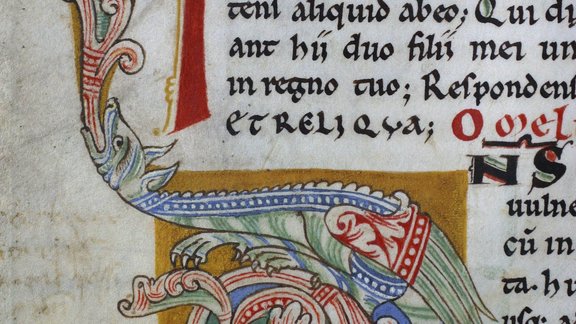 teni aliquid abeo; Qui di
ant hii duo filii mei un
in regno tuo; Respondens
ET RELIQUA; Omel
NS
uulne
cū in
ta. hu